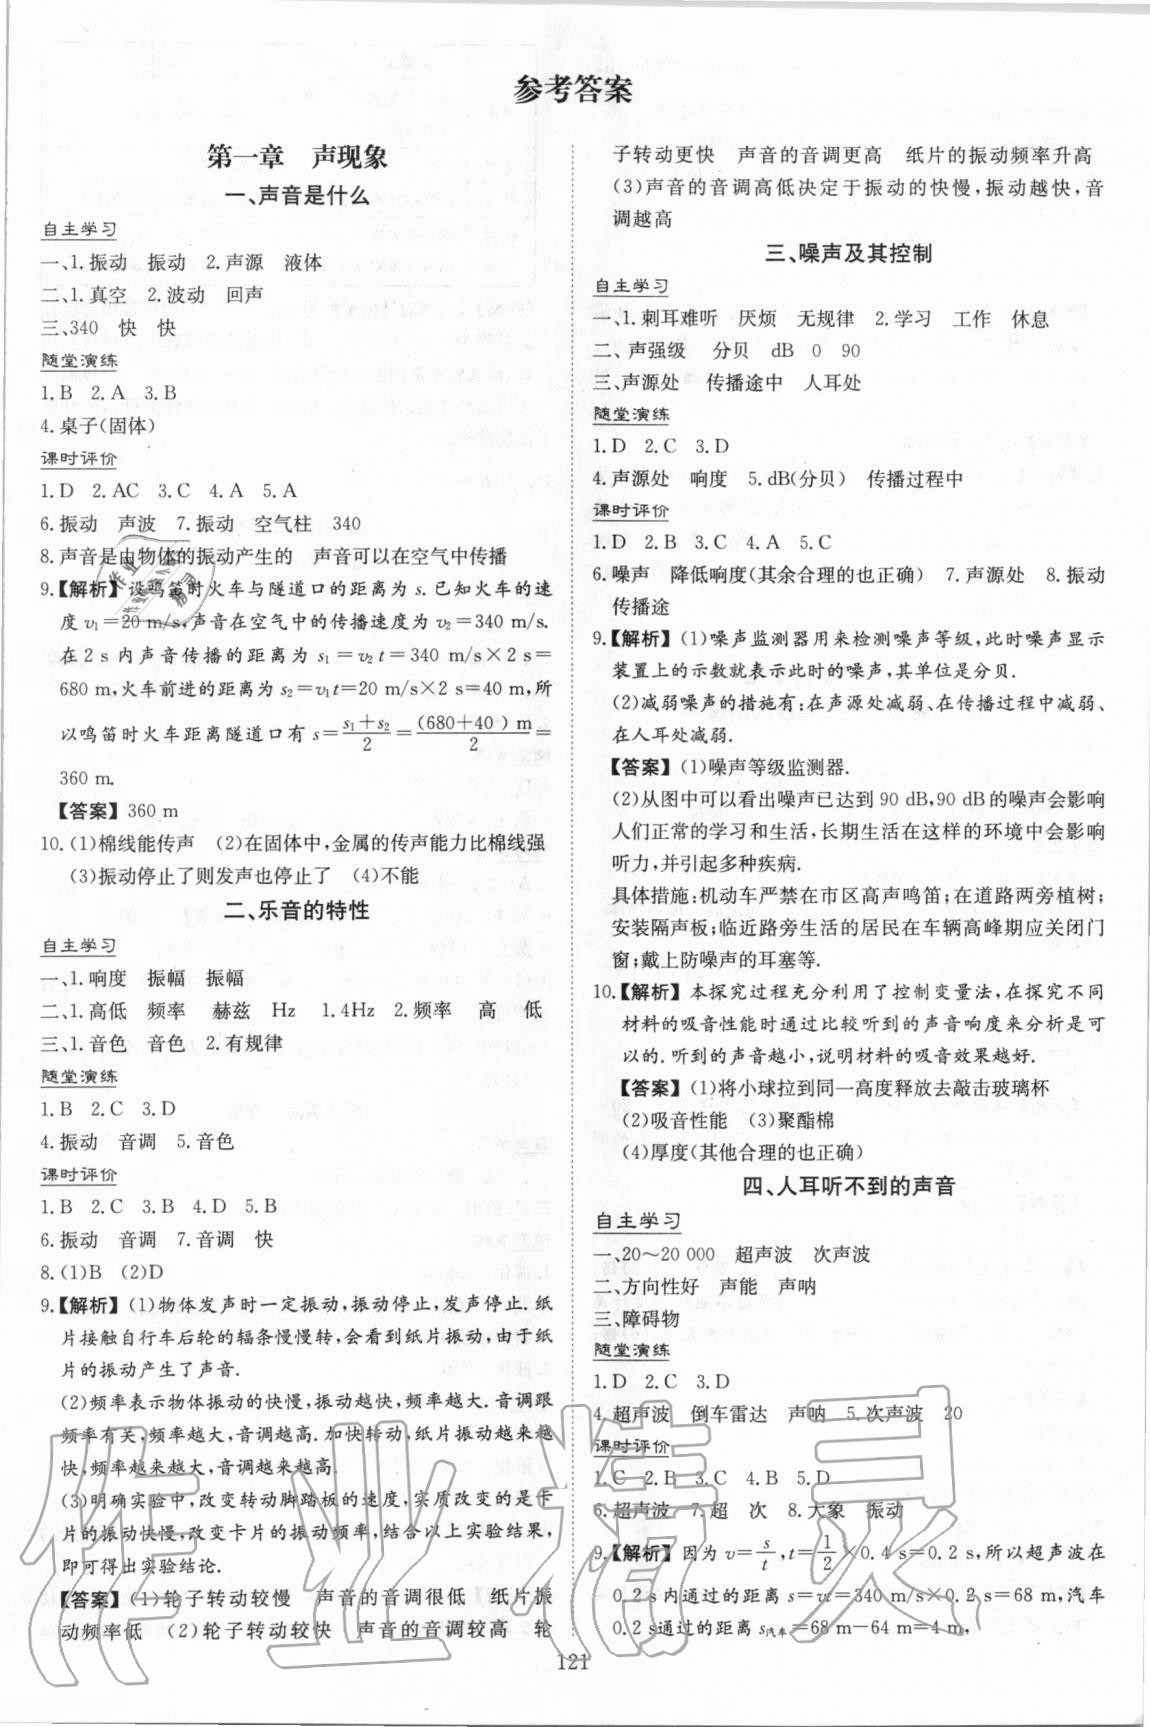 参考答案
第一章 声现象
一、声音是什么
自主学习
一、1.振动 振动 2.声源 液体
二、1.真空 2.波动 回声
三、340 快 快
随堂演练
1.B 2.A 3.B
4.桌子(固体)
课时评价
1.D 2.AC 3.C 4.A 5.A
6.振动 声波 7.振动 空气柱 340
8.声音是由物体的振动产生的 声音可以在空气中传播
9.【解析】设鸣笛时火车与隧道口的距离为 s.已知火车的速
度 v₁=20 m/s,声音在空气中的传播速度为 v₂=340 m/s.
在 2 s 内声音传播的距离为 s₁=v₂t=340 m/s×2 s=
680 m,火车前进的距离为 s₂=v₁t=20 m/s×2 s=40 m,所
以鸣笛时火车距离隧道口有 s=(s₁+s₂)/2=(680+40)m/2=
360 m.
【答案】360 m
10.(1)棉线能传声 (2)在固体中,金属的传声能力比棉线强
(3)振动停止了则发声也停止了 (4)不能
二、乐音的特性
自主学习
一、1.响度 振幅 振幅
二、1.高低 频率 赫兹 Hz 1.4Hz 2.频率 高 低
三、1.音色 音色 2.有规律
随堂演练
1.B 2.C 3.D
4.振动 音调 5.音色
课时评价
1.B 2.B 3.B 4.D 5.B
6.振动 音调 7.音调 快
8.(1)B (2)D
9.【解析】(1)物体发声时一定振动,振动停止,发声停止.纸
片接触自行车后轮的辐条慢慢转,会看到纸片振动,由于纸
片的振动产生了声音.
(2)频率表示物体振动的快慢,振动越快,频率越大.音调跟
频率有关,频率越大,音调越高.加快转动,纸片振动越来越
快,频率越来越大,音调越来越高.
(3)明确实验中,改变转动脚踏板的速度,实质改变的是卡
片的振动快慢,改变卡片的振动频率,结合以上实验结果,
即可得出实验结论.
【答案】(1)轮子转动较慢 声音的音调很低 纸片振
动频率低 (2)轮子转动较快 声音的音调较高 轮
子转动更快 声音的音调更高 纸片的振动频率升高
(3)声音的音调高低决定于振动的快慢,振动越快,音
调越高
三、噪声及其控制
自主学习
一、1.刺耳难听 厌烦 无规律 2.学习 工作 休息
二、声强级 分贝 dB 0 90
三、声源处 传播途中 人耳处
随堂演练
1.D 2.C 3.D
4.声源处 响度 5.dB(分贝) 传播过程中
课时评价
1.D 2.B 3.C 4.A 5.C
6.噪声 降低响度(其余合理的也正确) 7.声源处 8.振动
传播途
9.【解析】(1)噪声监测器用来检测噪声等级,此时噪声显示
装置上的示数就表示此时的噪声,其单位是分贝.
(2)减弱噪声的措施有:在声源处减弱、在传播过程中减弱、
在人耳处减弱.
【答案】(1)噪声等级监测器.
(2)从图中可以看出噪声已达到 90 dB,90 dB的噪声会影响
人们正常的学习和生活,长期生活在这样的环境中会影响
听力,并引起多种疾病.
具体措施:机动车严禁在市区高声鸣笛;在道路两旁植树;
安装隔声板;临近路旁生活的居民在车辆高峰期应关闭门
窗;戴上防噪声的耳塞等.
10.【解析】本探究过程充分利用了控制变量法,在探究不同
材料的吸音性能时通过比较听到的声音响度来分析是可
以的.听到的声音越小,说明材料的吸音效果越好.
【答案】(1)将小球拉到同一高度释放去敲击玻璃杯
(2)吸音性能 (3)聚酯棉
(4)厚度(其他合理的也正确)
四、人耳听不到的声音
自主学习
一、20～20 000 超声波 次声波
二、方向性好 声能 声呐
三、障碍物
随堂演练
1.D 2.C 3.D
4.超声波 倒车雷达 声呐 5.次声波 20
课时评价
1.C 2.B 3.C 4.B 5.D
6.超声波 7.超 次 8.大象 振动
9.【解析】因为 v=s/t,t=1/2×0.4 s=0.2 s,所以超声波在
0.2 s内通过的距离 s=vt=340 m/s×0.2 s=68 m,汽车
0.2 s通过的距离 s汽车=68 m-64 m=4 m,
121
作业精灵